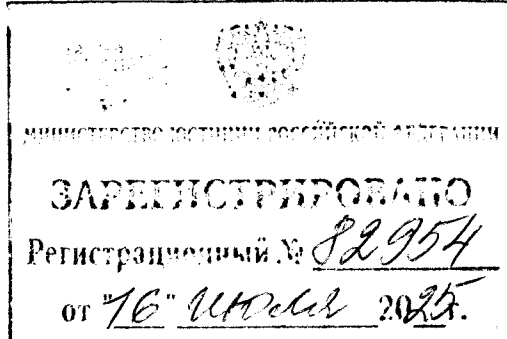 МИНИСТЕРСТВО ЮСТИЦИИ РОССИЙСКОЙ ФЕДЕРАЦИИ
ЗАРЕГИСТРИРОВАНО
Регистрационный № 82954
от "16" июля 2025г.